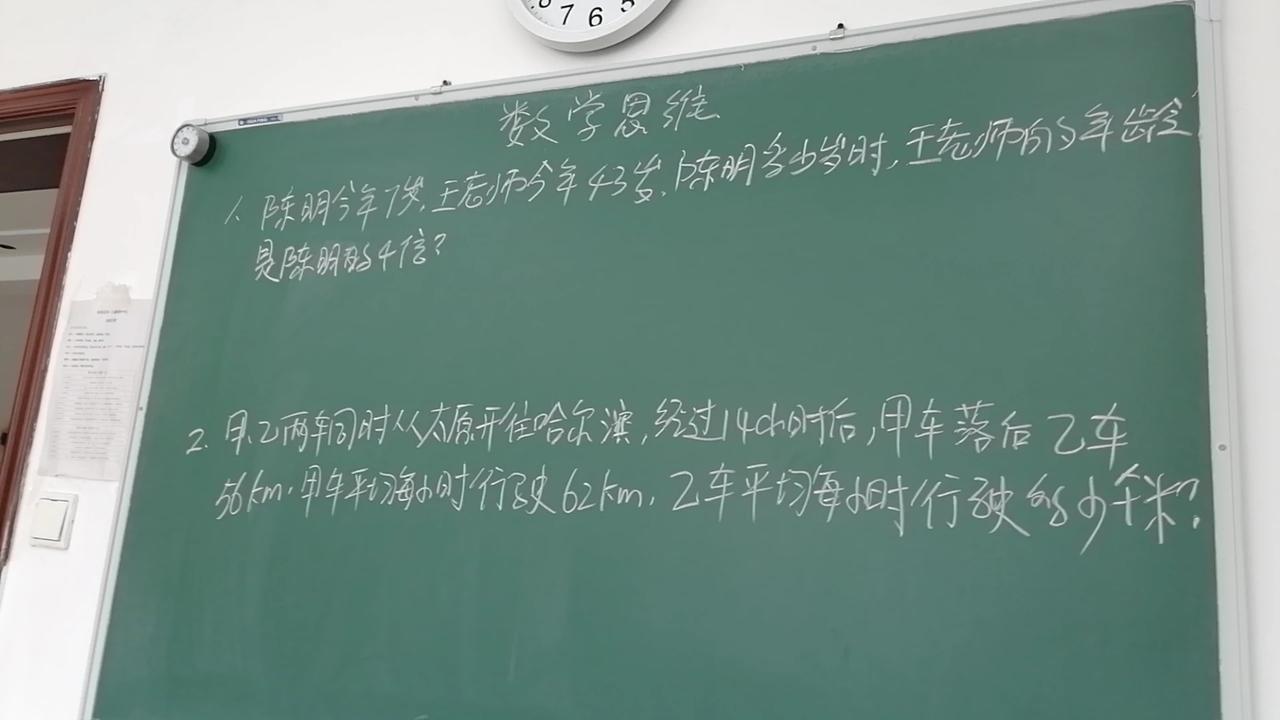 7 6 5
数学思维
1. 陈明今年7岁,王老师今年43岁,陈明多少岁时,王老师的年龄
是陈明的4倍?
2. 甲、乙两车同时从太原开往哈尔滨,经过14小时后,甲车落后乙车
56km.甲车平均每小时行驶62km.乙车平均每小时行驶多少千米?